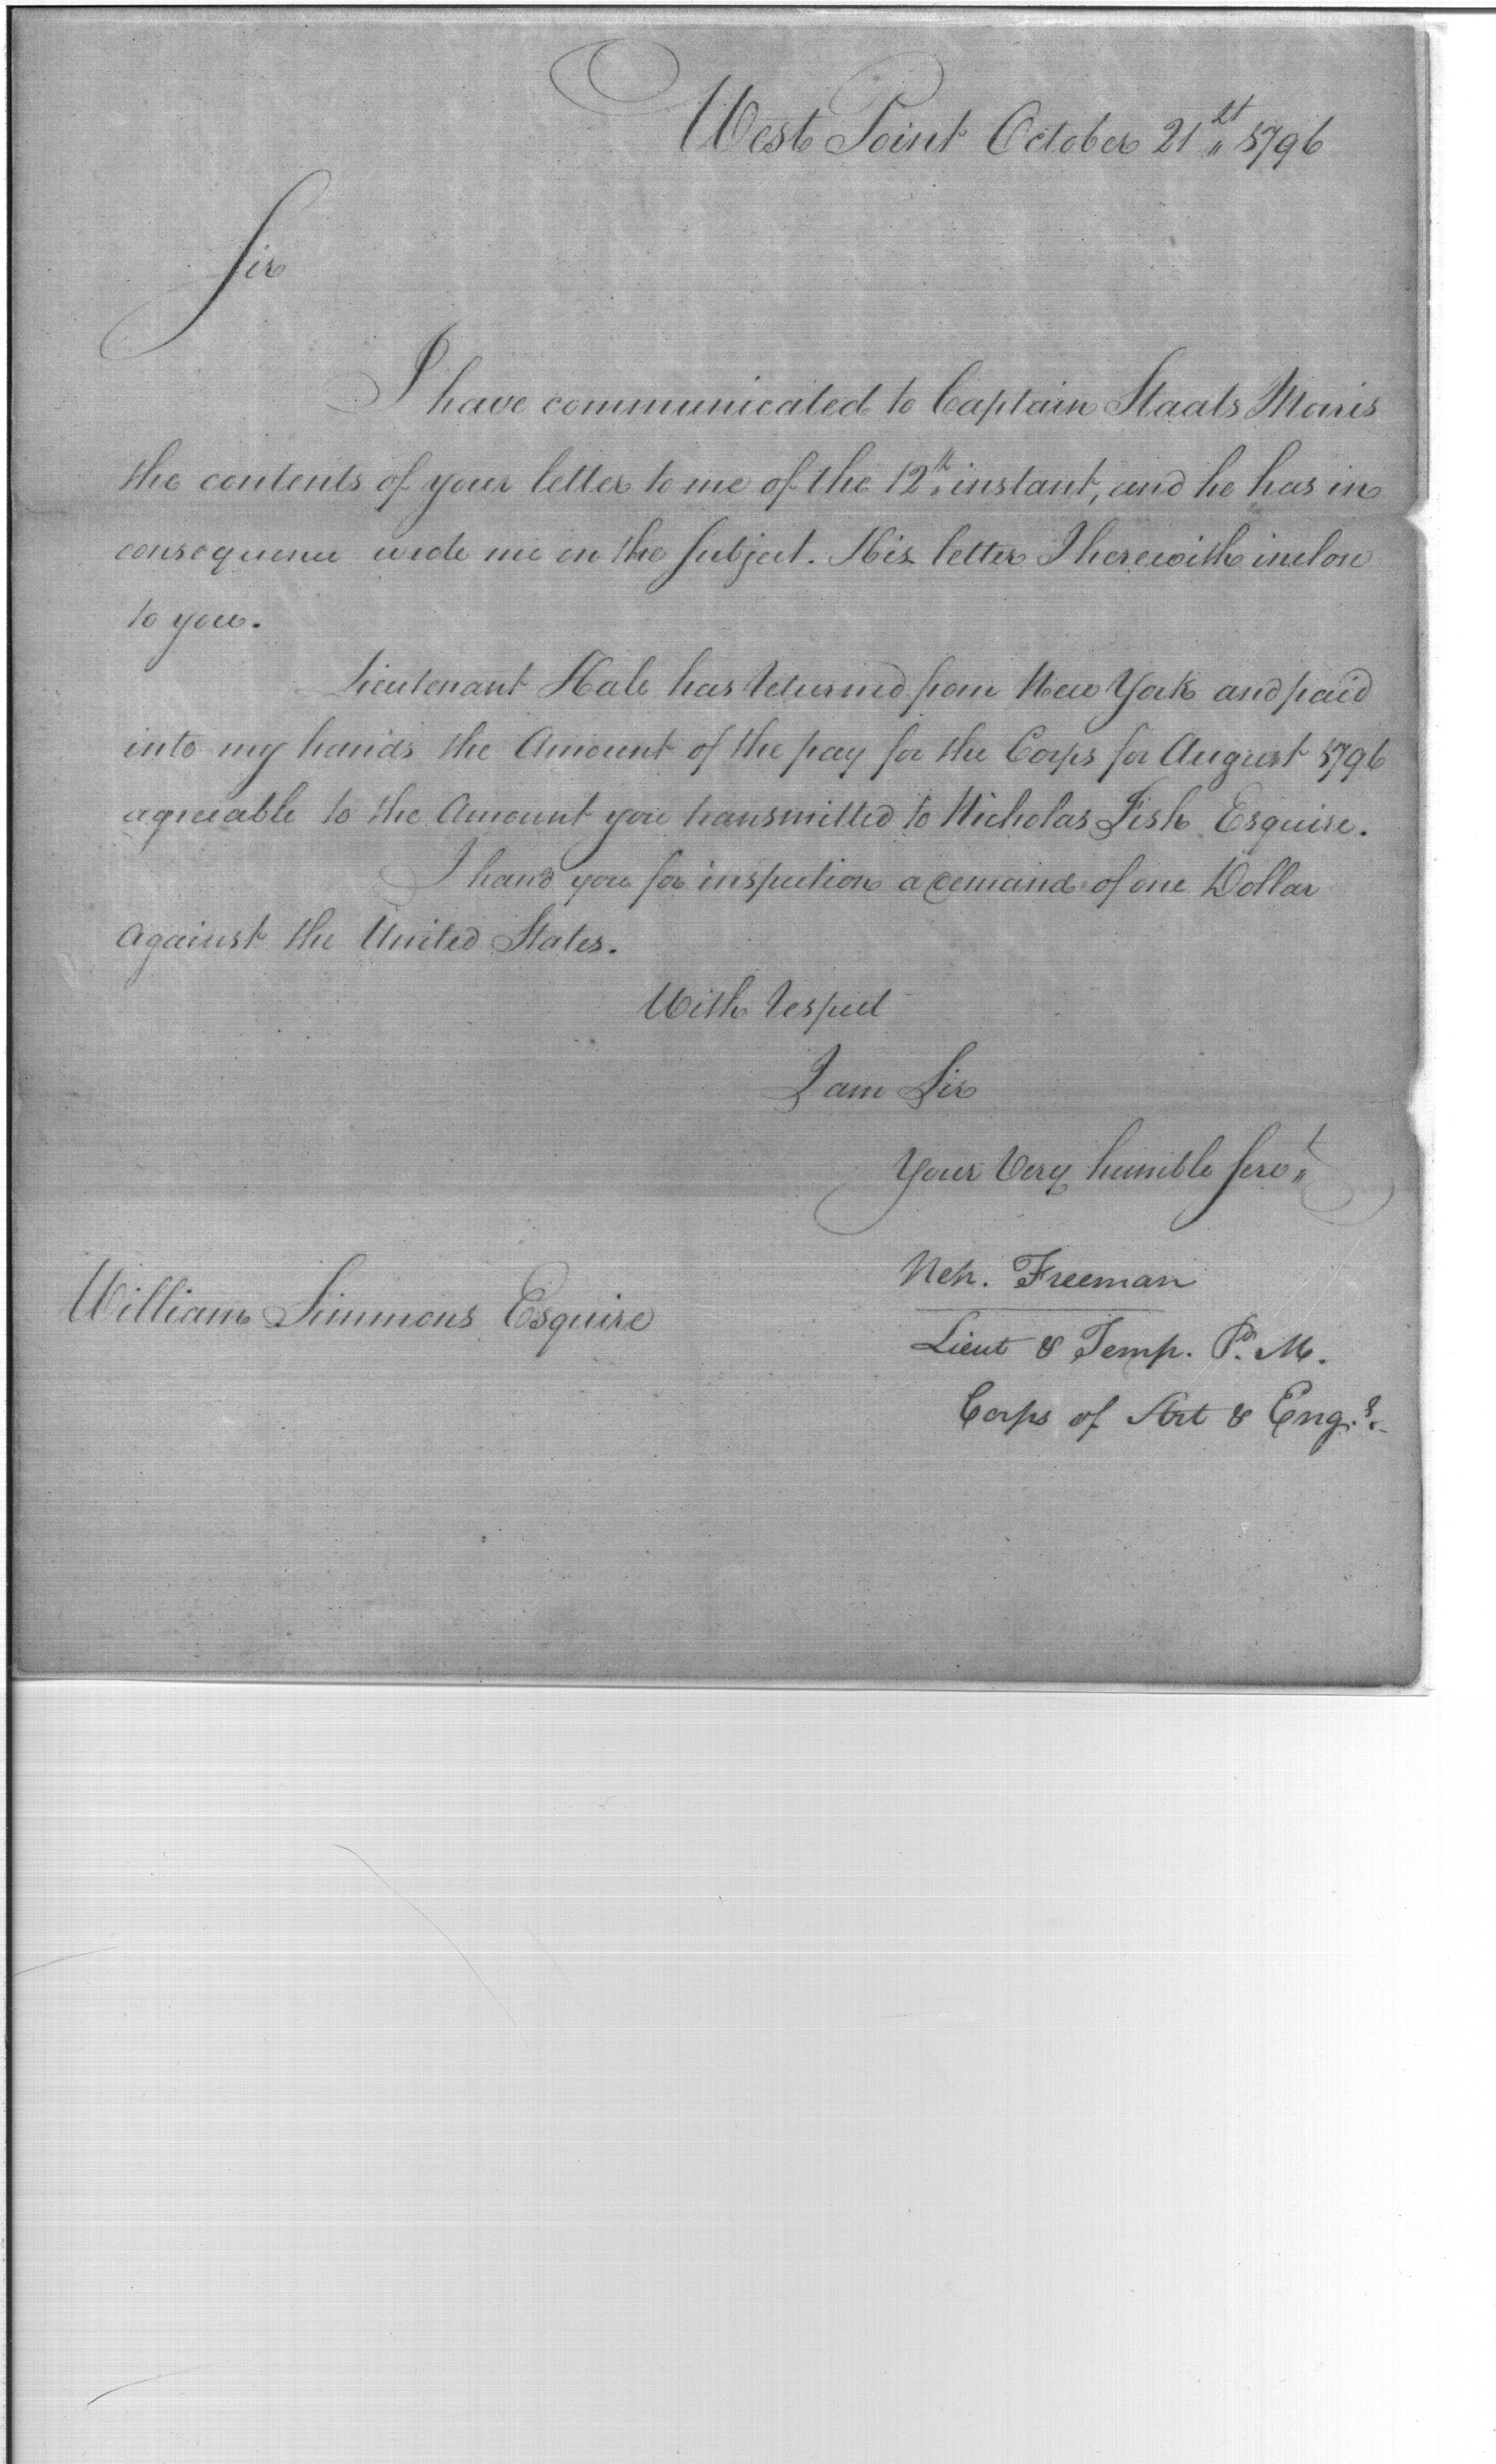 West Point October 21st 1796
Sir
I have communicated to Captain Staats Morris
the contents of your letter to me of the 12th instant, and he has in
consequence wrote me on the subject. His letter I herewith inclose
to you.
Lieutenant Hale has returned from New York and paid
into my hands the Amount of the pay for the Corps for August 1796
agreeable to the Amount you transmitted to Nicholas Fish Esquire.
I hand you for inspection a demand of one Dollar
against the United States.
With respect
I am Sir
Your Very humble Servt
William Simmons Esquire
Neh. Freeman
Lieut & Temp. P. M.
Corps of Art & Engs.